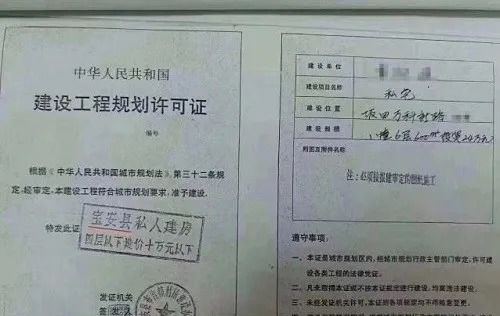 中华人民共和国
建设工程规划许可证
编号
根据《中华人民共和国城市规划法》第三十二条规
定,经审定,本建设工程符合城市规划要求,准予建设。
特发此证
宝安县私人建房
四层以下造价十万元以下
发证机关
建设单位
建设项目名称
私宅
建设位置
坂田万科村路
建设规模
1幢6层600m²投资24万元
附图及附件名称
注:必须按报建审定的图纸施工
遵守事项:
一、本证是城市规划区内,经城市规划行政主管部门审定,许可建
设各类工程的法律凭证。
二、凡未取得本证或不按本证规定进行建设,均属违法建设。
三、未经发证机关许可,本证的各项规定均不得随意变更。